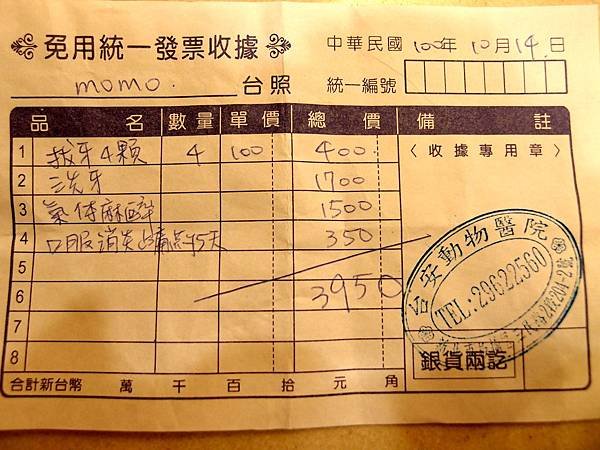 免用統一發票收據
中華民國 100年 10月 14日
momo. 台照
統一編號
品名 數量 單價 總價 備註
1 拔牙4顆 4 100 400
〈收據專用章〉
2 洗牙 1700
3 氣体麻醉 1500
4 口服消炎 5天 350
5
6 3950
7
8
動物醫院
TEL:29622560
銀貨兩訖
合計新台幣 萬 千 百 拾 元 角